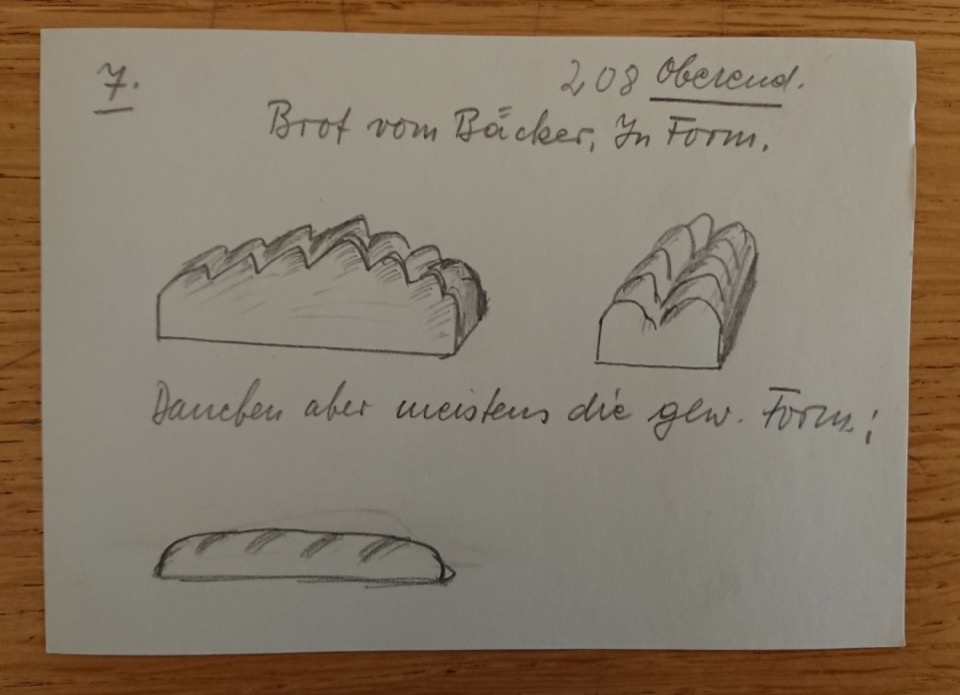 7.
208 Oberend.
Brot vom Bäcker, In Form.
Daneben aber meistens die gew. Form.: